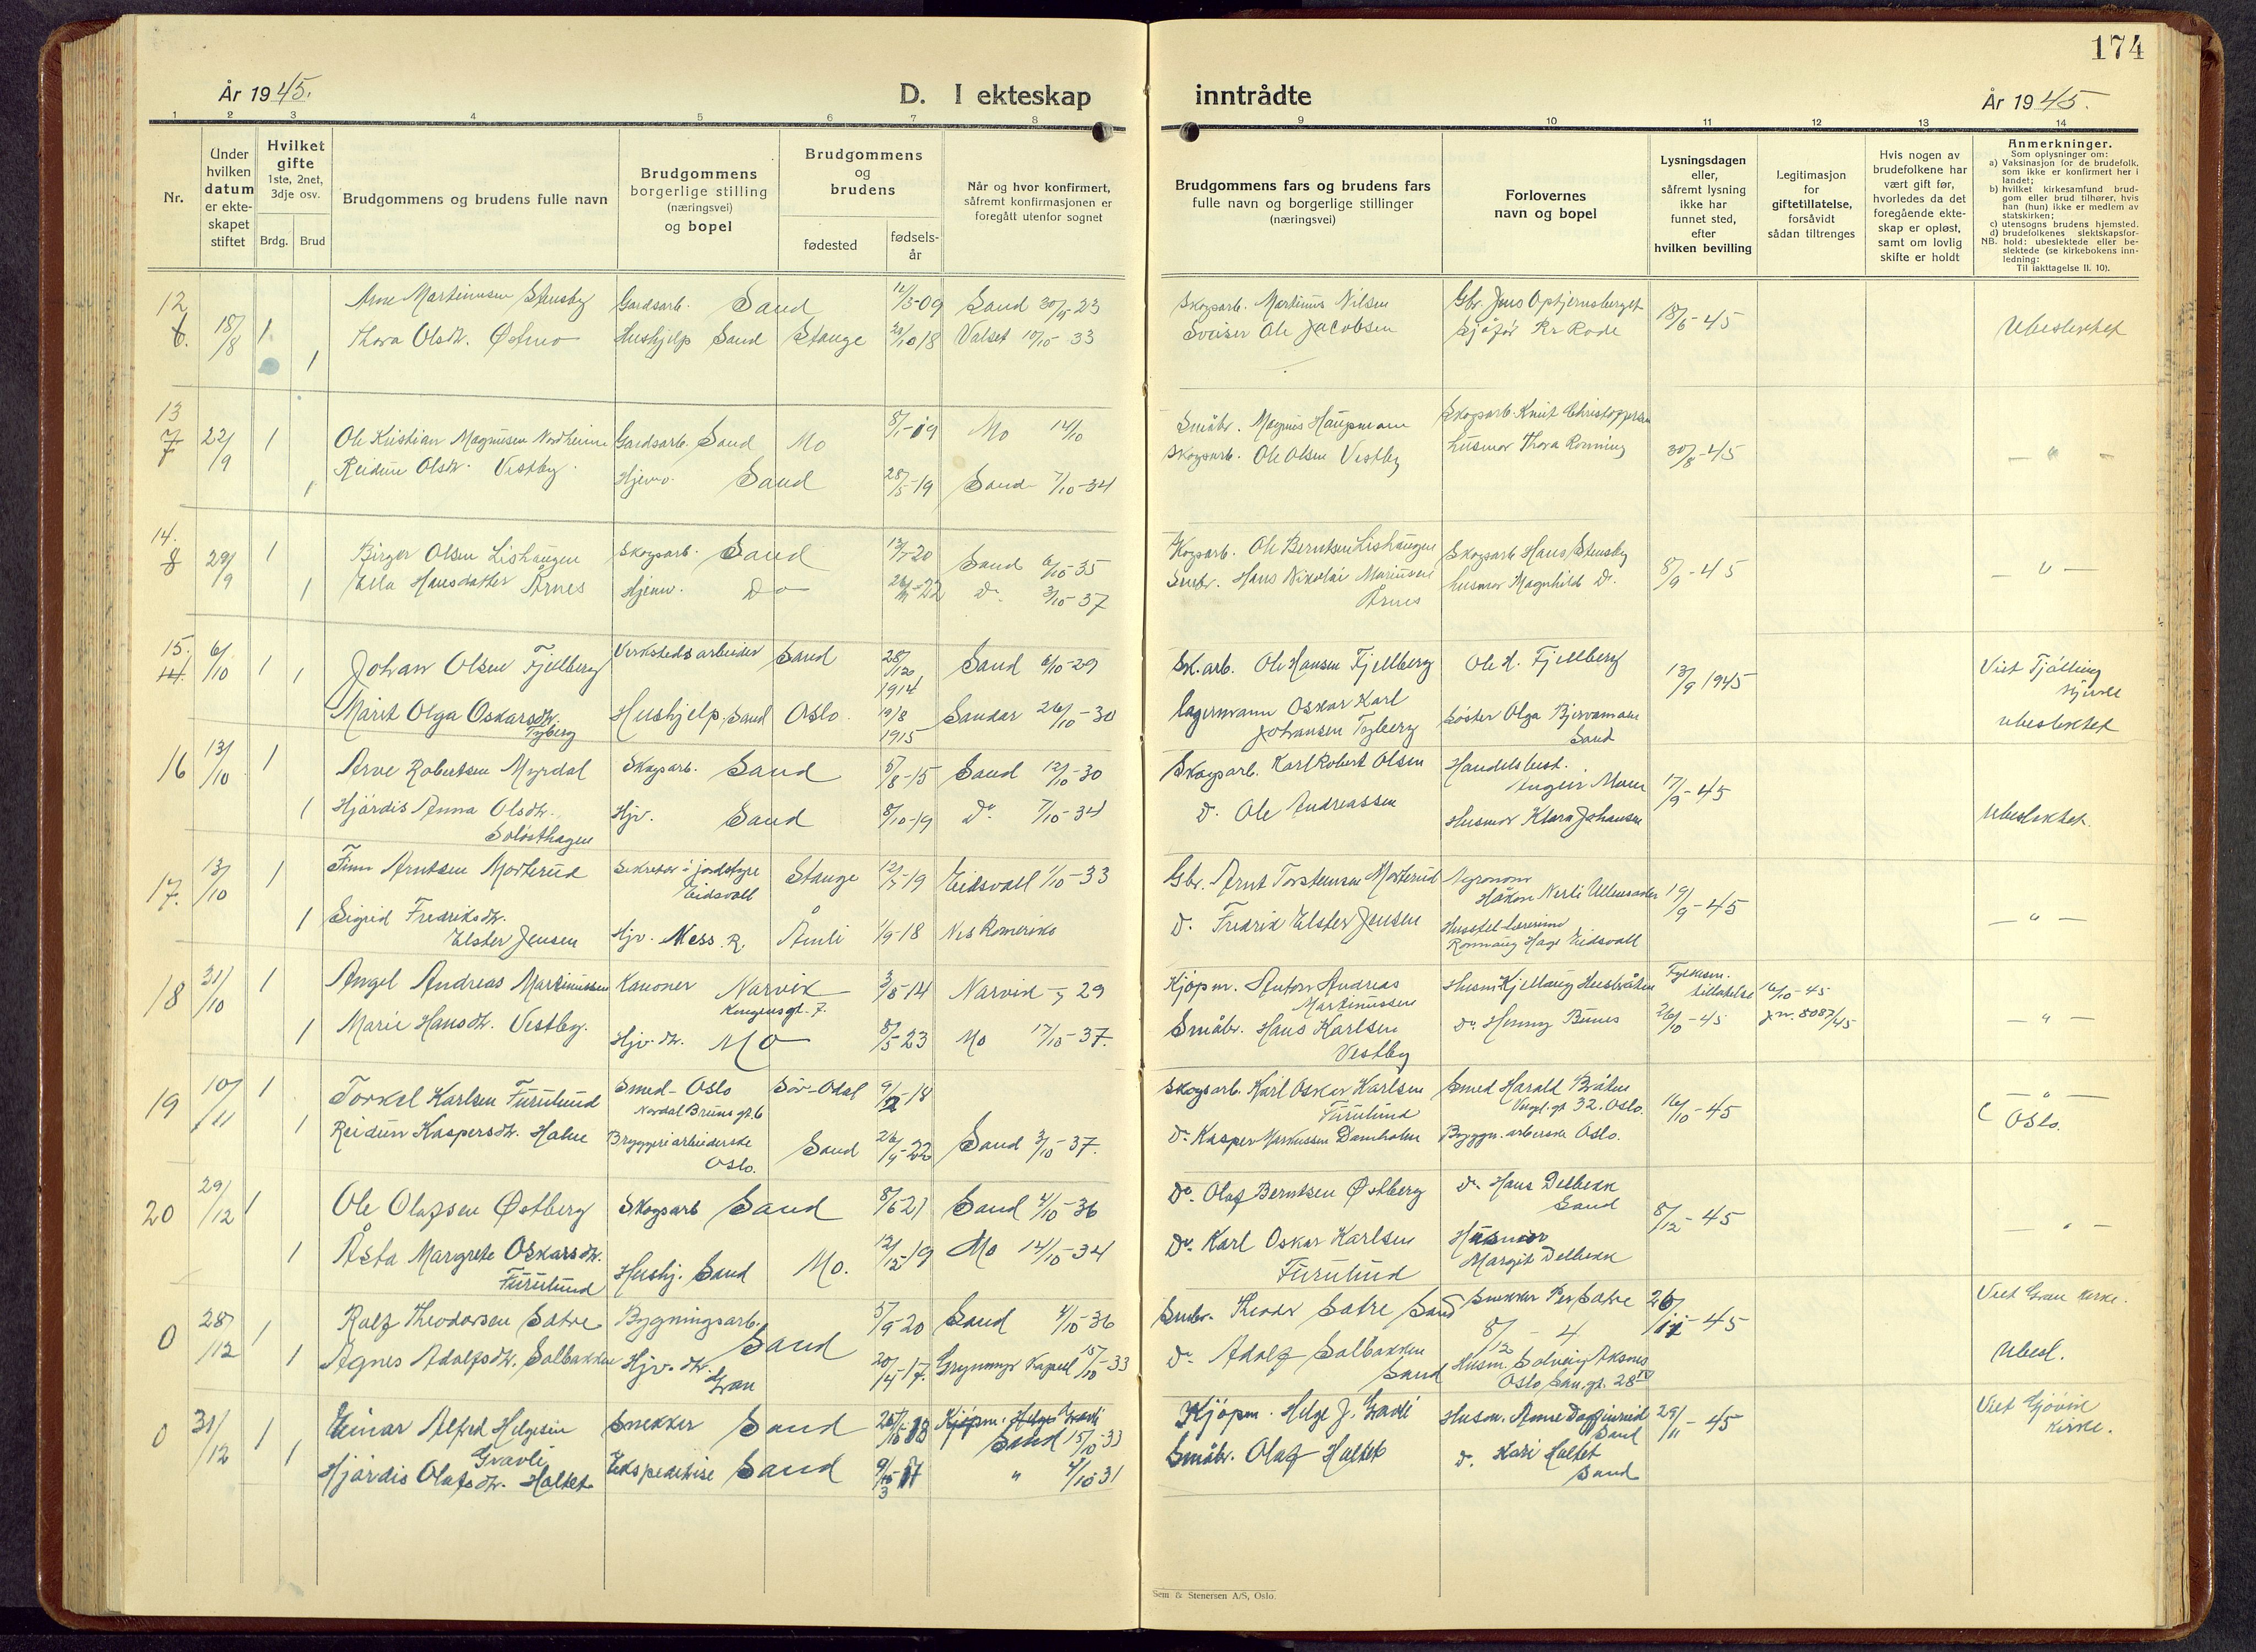 174
År 1945.
D. I ekteskap
inntrådte
År 1945.
1 2 3 4 5 6 7 8 9 10 11 12 13 14
Nr.
Under hvilken datum er ekteskapet stiftet
Hvilket gifte
1ste, 2net, 3dje osv.
Brdg. Brud
Brudgommens og brudens fulle navn
Brudgommens borgerlige stilling (næringsvei) og bopel
Brudgommens og brudens
fødested
fødselsår
Når og hvor konfirmert, såfremt konfirmasjonen er foregått utenfor sognet
Brudgommens fars og brudens fars fulle navn og borgerlige stillinger (næringsvei)
Forlovernes navn og bopel
Lysningsdagen eller, såfremt lysning ikke har funnet sted, efter hvilken bevilling
Legitimasjon for giftetillatelse, forsåvidt sådan tiltrenges
Hvis nogen av brudefolkene har vært gift før, hvorledes da det foregående ekteskap er opløst, samt om lovlig skifte er holdt
Anmerkninger.
Som oplysninger om:
a) Vaksinasjon for de brudefolk, som ikke er konfirmert her i landet;
b) hvilket kirkesamfund brudgom eller brud tilhører, hvis han (hun) ikke er medlem av statskirken;
c) utensogns brudens hjemsted.
d) brudefolkenes slektskapsforhold: ubeslektede eller beslektede (se kirkebokens innledning:
NB.
Til iakttagelse II. 10).
12
6. 18/8 1 Arne Martinusen Stensby Gardsarb. Sand 09 Sand 23 Skogsarb. Martinus Nilsen Gbr. Jens 45
1 Thora Olsdtr. Østmo Hushjelp Sand Stange 18 Valset 33 Sveiser Ole Jacobsen Sjåfør Kr Rode Ubeslektet
13
7 22/9 1 Ole Kristian Magnusen Nordheim Gardsarb. Sand Mo 19 Mo 14/10 Småbr. Magnus Skogsarb. Knut Christoffersen
1 Reidun Olsdtr. Vestby. Hjemv. Sand 28/5-19 Sand 7/10-34 Skogsarb. Ole Olsen Vestby husmor Thora Rønning 30/8-45 — " —
14.
8 29/9 1 Birger Olsen Lishaugen Skogsarb. Sand 20 Sand 35 Skogsarb. Ole Berntsen Lishaugen Skogsarb Hans Stensby 8/9-45
1 Ella Hansdatter Årnes Hjemv. Do 22 Do 37 Smbr. Hans Nikolai Mariusen Årnes husmor Magnhild Do. — " —
15.
6/10 1 1 Johan Olsen Fjellberg Verkstedsarbeider Sand 1914 Sand 6/10-29 Sk.arb. Ole Hansen Fjellberg Ole H. Fjellberg 13/9 1945 Viet Tjølling
Marit Olga Oskarsdtr. Tyberg Hushjelp, Sand Oslo. 19/8 1915 Sandar 26/10-30 Lagermann Oskar Karl Johansen Tyberg Søster Olga Sand ubeslektet
16 13/10 1 Arve Robertsen Myrdal Skogsarb. Sand 5/8-15 Sand 12/10-30 Skogsarb. Karl Robert Olsen Handelsbest. Moen 17/9-45
1 Hjørdis Anna Olsdtr. Solösthagen Hjv. Sand 8/10-19 Do 7/10-34 Do. Ole Andreassen Husmor Klara Johansen Ubeslektet.
17. 13/10 1 Finn Arntsen Morterud Sekretær i jordstyre Eidsvoll Stange 19 Eidsvoll 1/10-33 Gbr. Arnt Torstensen Morterud Agronom Håkon Nerli Ullensaker 19/9-45
1 Sigrid Fredriksdtr. Elster Jensen Hjv. Nes R. Åmli 1/9-18 Nes Romerike Do. Fredrik Elster Jensen Husstel-lærerinne Rønnaug Hage Eidsvoll — " —
18 31/10 1 Angel Andreas Martinussen Kanoner Narvik Kongensgt. 7. 14 Narvik 29 Kjøpm. Anton Andreas Martinussen Husm Kjellaug Fylkesm. tillatelse 16/10-45
1 Marie Hansdtr. Vestby. Hjv. dtr. Mo 8/5 23 Mo 17/10-37. Småbr. Hans Karlsen Vestby Do Henny 26/10-45 jnr. 8087/45 — " —
19 10/11 1 Torkel Karlsen Furulund Smed - Oslo Nordal Bruns gt. 6 Sör-Odal 18 Skogsarb. Karl Oskar Karlsen Furulund Smed Harald Bråten gt 32. Oslo. 16/10-45 — " —
1 Reidun Kaspersdtr. Holm Bryggeriarbeiderske Oslo. Sand 22 Sand 3/10-37. Do Kasper Markussen Damholen Bryggn. arberske Oslo. ( Oslo.
20 29/12 1 Ole Olafsen Østberg Skogsarb Sand 21 Sand 4/10-36 Do. Olaf Berntsen Østberg Do. Hans Delbekk Sand 8/12-45
1 Åsta Margrete Oskarsdtr. Furulund Hushj. Sand Mo. 12/12-19 Mo 14/10-34 Do. Karl Oskar Karlsen Furulund Husmor Margit Delbekk — " —
0 28/12 1 Rolf Theodorsen Sætre Bygningsarb. Sand 5/9-20 Sand 4/10-36 Smbr. Theodor Sætre Sand Snekker Per Sætre 45 Viet Gran kirke.
1 Agnes Adolfsdtr. Solbakken Hjv. dtr. Gran 20/4-17. Grymyr Kapell 33 Do. Adolf Solbakken Sand 8/12 - 4 Husm. Solveig Aksnes Oslo Ubesl.
0 31/12 1 Einar Alfred Helgesen Gravli Snekker Sand 18 Kjøpm. Helge Gravli Sand 15/10-33 Kjøpm. Helge J. Gravli Husm. Anne Sand 29/11-45 Viet Gjövik kirke.
1 Hjördis Olafsdtr. Holtet Ekspeditrise Sand 17 " 4/10-31 Småbr. Olaf Holtet Do. Kari Holtet Sand
Sem & Stenersen A/S, Oslo.